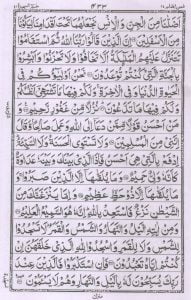 ٤٣٣
اَضَلّٰنَا مِنَ الْجِنِّ وَالْاِنْسِ نَجْعَلْهُمَا تَحْتَ اَقْدَامِنَا لِيَكُوْنَا
مِنَ الْاَسْفَلِيْنَ ۝ اِنَّ الَّذِيْنَ قَالُوْا رَبُّنَا اللّٰهُ ثُمَّ اسْتَقَامُوْا
تَتَنَزَّلُ عَلَيْهِمُ الْمَلٰٓئِكَةُ اَلَّا تَخَافُوْا وَلَا تَحْزَنُوْا وَاَبْشِرُوْا
بِالْجَنَّةِ الَّتِيْ كُنْتُمْ تُوْعَدُوْنَ ۝ نَحْنُ اَوْلِيٰٓؤُكُمْ فِي الْحَيٰوةِ
الدُّنْيَا وَفِي الْاٰخِرَةِ ۚ وَلَكُمْ فِيْهَا مَا تَشْتَهِيْٓ اَنْفُسُكُمْ
وَلَكُمْ فِيْهَا مَا تَدَّعُوْنَ ۝ نُزُلًا مِّنْ غَفُوْرٍ رَّحِيْمٍ ۝ وَ
مَنْ اَحْسَنُ قَوْلًا مِّمَّنْ دَعَآ اِلَى اللّٰهِ وَعَمِلَ صَالِحًا وَّقَالَ
اِنَّنِيْ مِنَ الْمُسْلِمِيْنَ ۝ وَلَا تَسْتَوِي الْحَسَنَةُ وَلَا السَّيِّئَةُ
اِدْفَعْ بِالَّتِيْ هِيَ اَحْسَنُ فَاِذَا الَّذِيْ بَيْنَكَ وَبَيْنَهٗ عَدَاوَةٌ كَاَنَّهٗ وَلِيٌّ حَمِيْمٌ ۝ وَ
مَا يُلَقّٰىهَآ اِلَّا الَّذِيْنَ صَبَرُوْا ۚ وَ
مَا يُلَقّٰىهَآ اِلَّا ذُوْ حَظٍّ عَظِيْمٍ ۝ وَاِمَّا يَنْزَغَنَّكَ مِنَ
الشَّيْطٰنِ نَزْغٌ فَاسْتَعِذْ بِاللّٰهِ ۗ اِنَّهٗ هُوَ السَّمِيْعُ الْعَلِيْمُ ۝
وَمِنْ اٰيٰتِهِ الَّيْلُ وَالنَّهَارُ وَالشَّمْسُ وَالْقَمَرُ ۗ لَا تَسْجُدُوْا
لِلشَّمْسِ وَلَا لِلْقَمَرِ وَاسْجُدُوْا لِلّٰهِ الَّذِيْ خَلَقَهُنَّ اِنْ
كُنْتُمْ اِيَّاهُ تَعْبُدُوْنَ ۝ فَاِنِ اسْتَكْبَرُوْا فَالَّذِيْنَ عِنْدَ
رَبِّكَ يُسَبِّحُوْنَ لَهٗ بِالَّيْلِ وَالنَّهَارِ وَهُمْ لَا يَسْـَٔمُوْنَ ۝